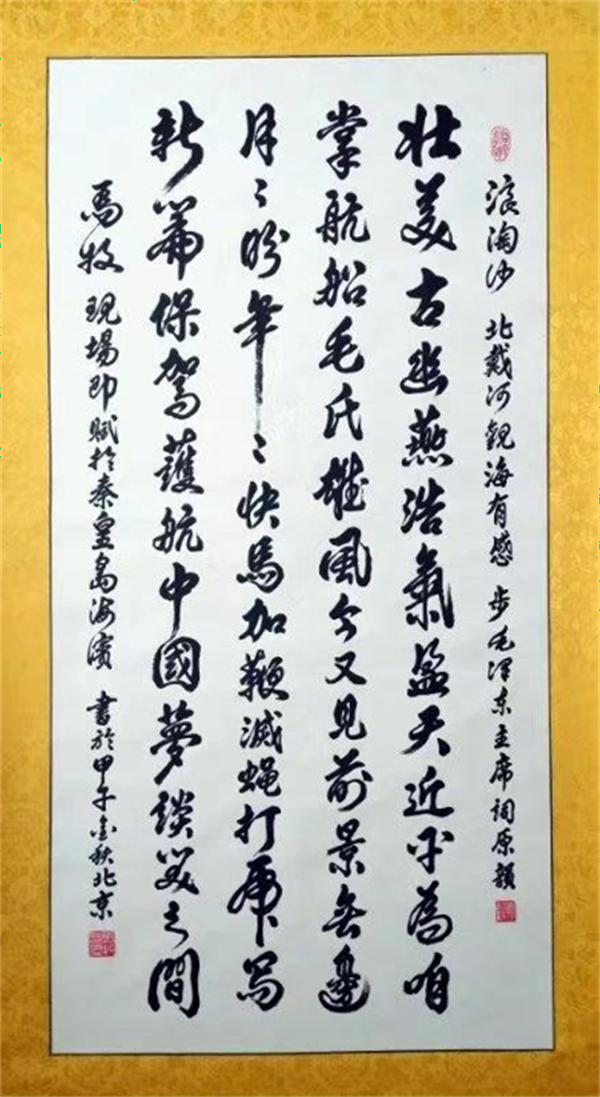 浪淘沙 北戴河觀海有感 步毛泽东主席词原韻
壮美古幽燕浩氣盈天近平為咱
掌航船毛氏雄风今又见前景无邊
月〻盼年〻快馬加鞭滅蝇打虎写
新篇保驾護航中國夢談笑之間
馬牧 現場即赋於秦皇島海濱 書於甲午金秋北京